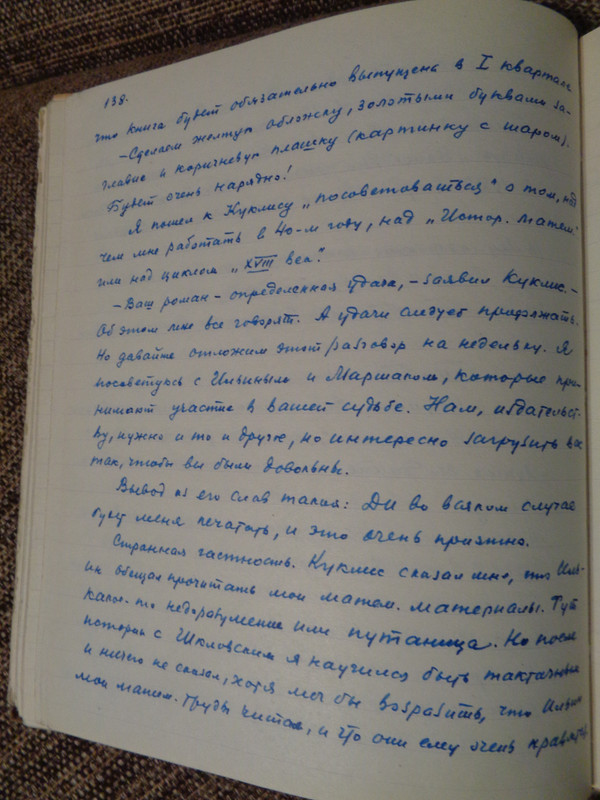 138.
что книга будет обязательно выпущена в I квартале.
— Сделаем желтую обложку, золотыми буквами за-
главие и коричневую плашку (картинку с шаром).
Будет очень нарядно!
Я пошел к Куклису „посоветоваться" о том, над
чем мне работать в 40-м году, над „Истор. матем."
или над циклом „XVIII век".
— Ваш роман – определенная удача, – заявил Куклис. –
Об этом мне все говорят. А удачи следует продолжать.
Но давайте отложим этот разговор на недельку. Я
посоветуюсь с Ильиным и Маршаком, которые при-
нимают участие в вашей судьбе. Нам, издательст-
ву, нужно и то и другое, но интересно загрузить вас
так, чтобы вы были довольны.
Вывод из его слов таков: ДИ во всяком случае
будут меня печатать, и это очень приятно.
Странная частность. Куклис сказал мне, что Иль-
ин обещал прочитать мои матем. материалы. Тут
какое-то недоразумение или путаница. Но после
истории с Шкловским я научился быть тактичным
и ничего не сказал, хотя мог бы возразить, что Ильин
мои матем. труды читал, и что они ему очень нравятся